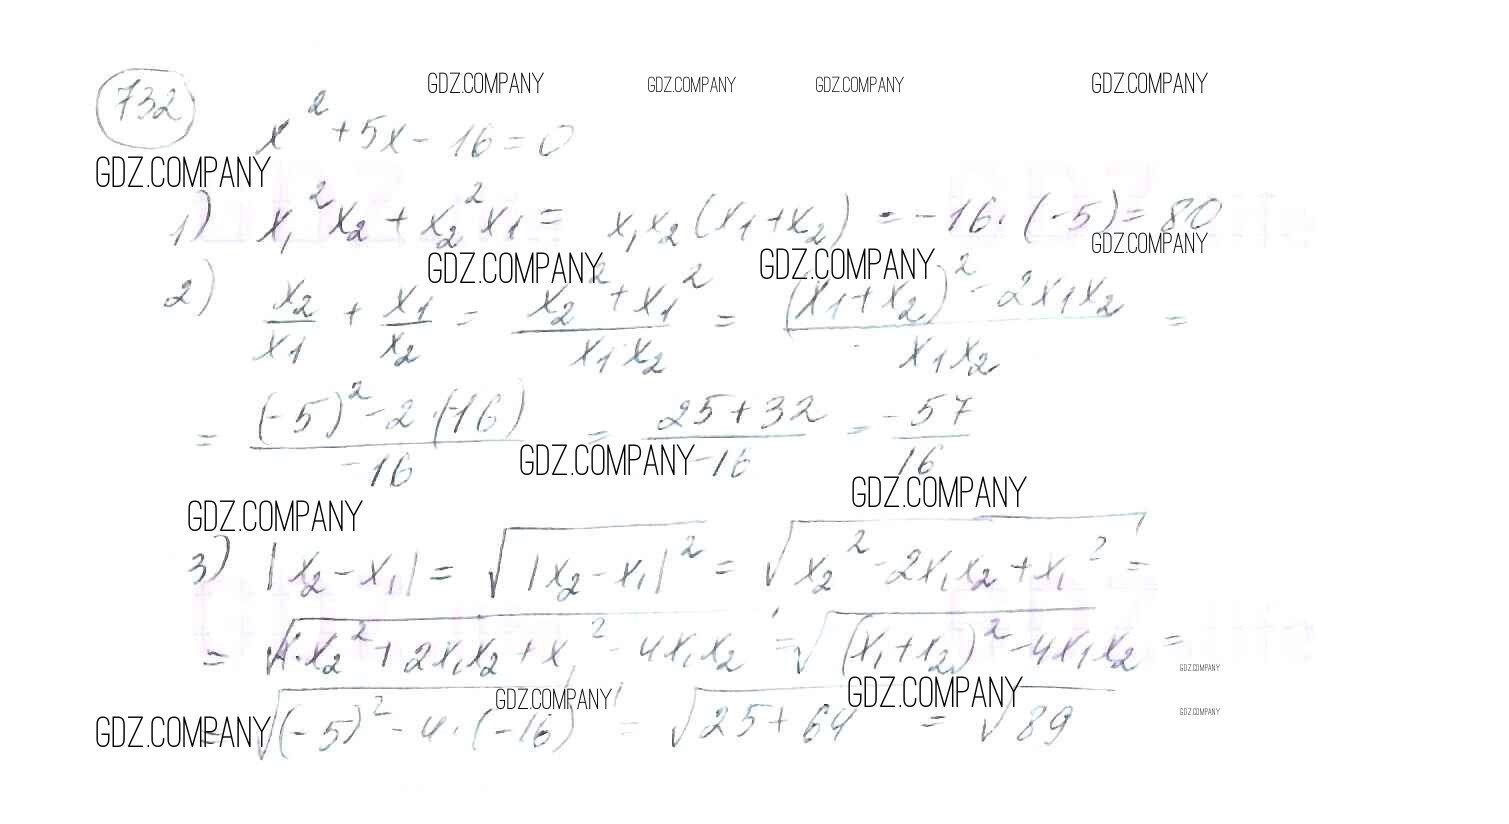 GDZ.COMPANY GDZ.COMPANY GDZ.COMPANY GDZ.COMPANY
732 x² + 5x - 16 = 0
GDZ.COMPANY
1) x₁²x₂ + x₂²x₁ = x₁x₂(x₁+x₂) = -16·(-5) = 80
GDZ.COMPANY
GDZ.COMPANY GDZ.COMPANY
2) x₂/x₁ + x₁/x₂ = (x₂² + x₁²)/(x₁x₂) = ((x₁+x₂)² - 2x₁x₂)/(x₁x₂) =
= ((-5)² - 2·(-16))/(-16) = (25+32)/(-16) = -57/16
GDZ.COMPANY
GDZ.COMPANY
GDZ.COMPANY
3) |x₂ - x₁| = √(|x₂ - x₁|²) = √(x₂² - 2x₁x₂ + x₁²) =
= √(x₂² + 2x₁x₂ + x₁² - 4x₁x₂) = √((x₁+x₂)² - 4x₁x₂) =
GDZ.COMPANY
GDZ.COMPANY GDZ.COMPANY
GDZ.COMPANY
GDZ.COMPANY
= √((-5)² - 4·(-16)) = √(25+64) = √89